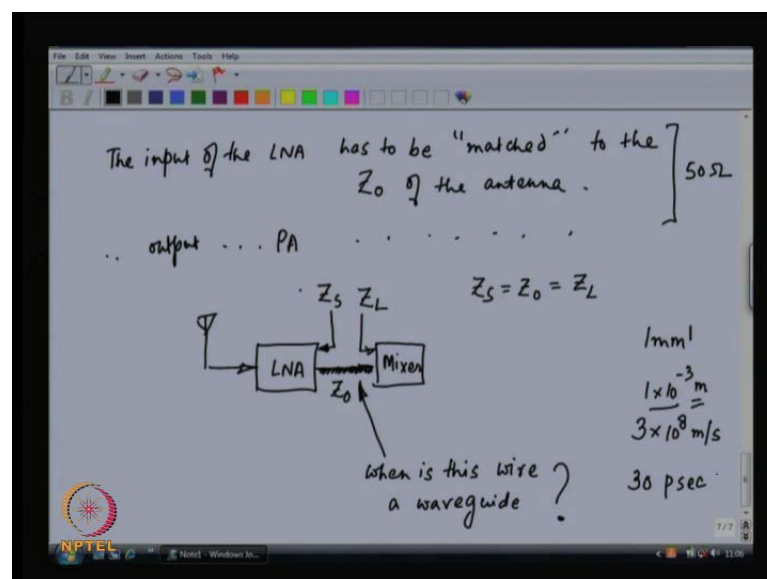 File Edit View Insert Actions Tools Help
B I
The input of the LNA has to be "matched" to the
Z0 of the antenna.
50Ω
.. output ... PA . . . . . . .
ZS ZL
ZS = Z0 = ZL
LNA
Mixer
Z0
1mm
1×10^-3 m
3×10^8 m/s
30 psec
when is this wire
a waveguide ?
7/7
NPTEL
Note1 - Windows Jo...
11:06